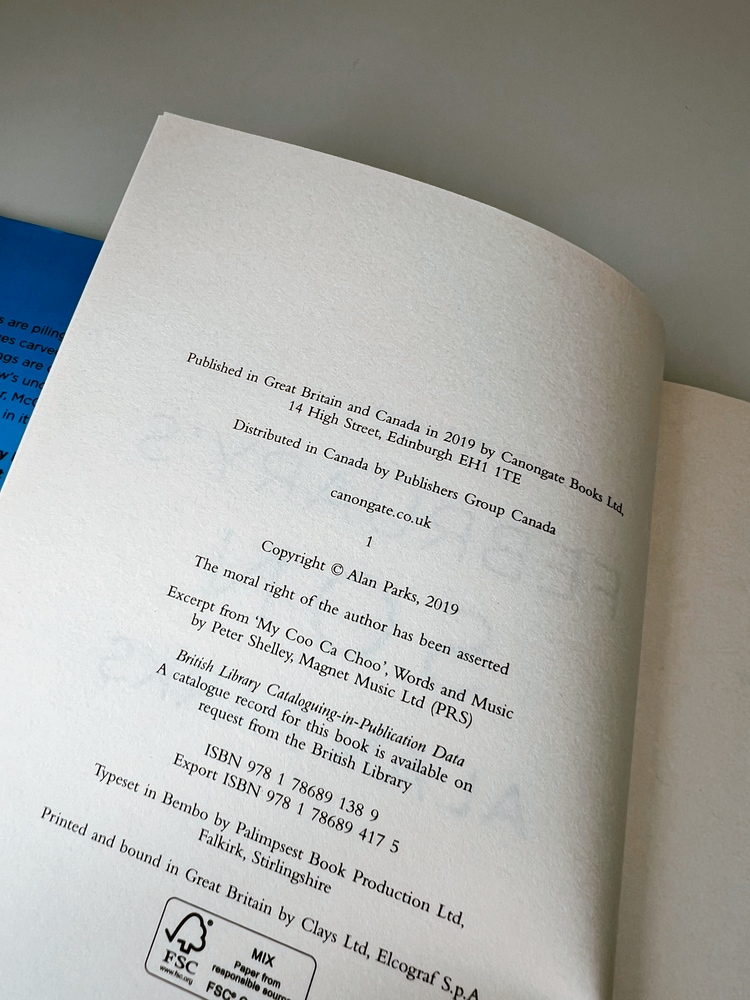 s are piling
es carve
ngs are
w's und
r, McC
in it
Published in Great Britain and Canada in 2019 by Canongate Books Ltd,
14 High Street, Edinburgh EH1 1TE
Distributed in Canada by Publishers Group Canada
canongate.co.uk
1
Copyright © Alan Parks, 2019
The moral right of the author has been asserted
Excerpt from ‘My Coo Ca Choo’, Words and Music
by Peter Shelley, Magnet Music Ltd (PRS)
British Library Cataloguing-in-Publication Data
A catalogue record for this book is available on
request from the British Library
ISBN 978 1 78689 138 9
Export ISBN 978 1 78689 417 5
Typeset in Bembo by Palimpsest Book Production Ltd,
Falkirk, Stirlingshire
Printed and bound in Great Britain by Clays Ltd, Elcograf S.p.A
FSC
www.fsc.org
MIX
Paper from
responsible source
FSC®